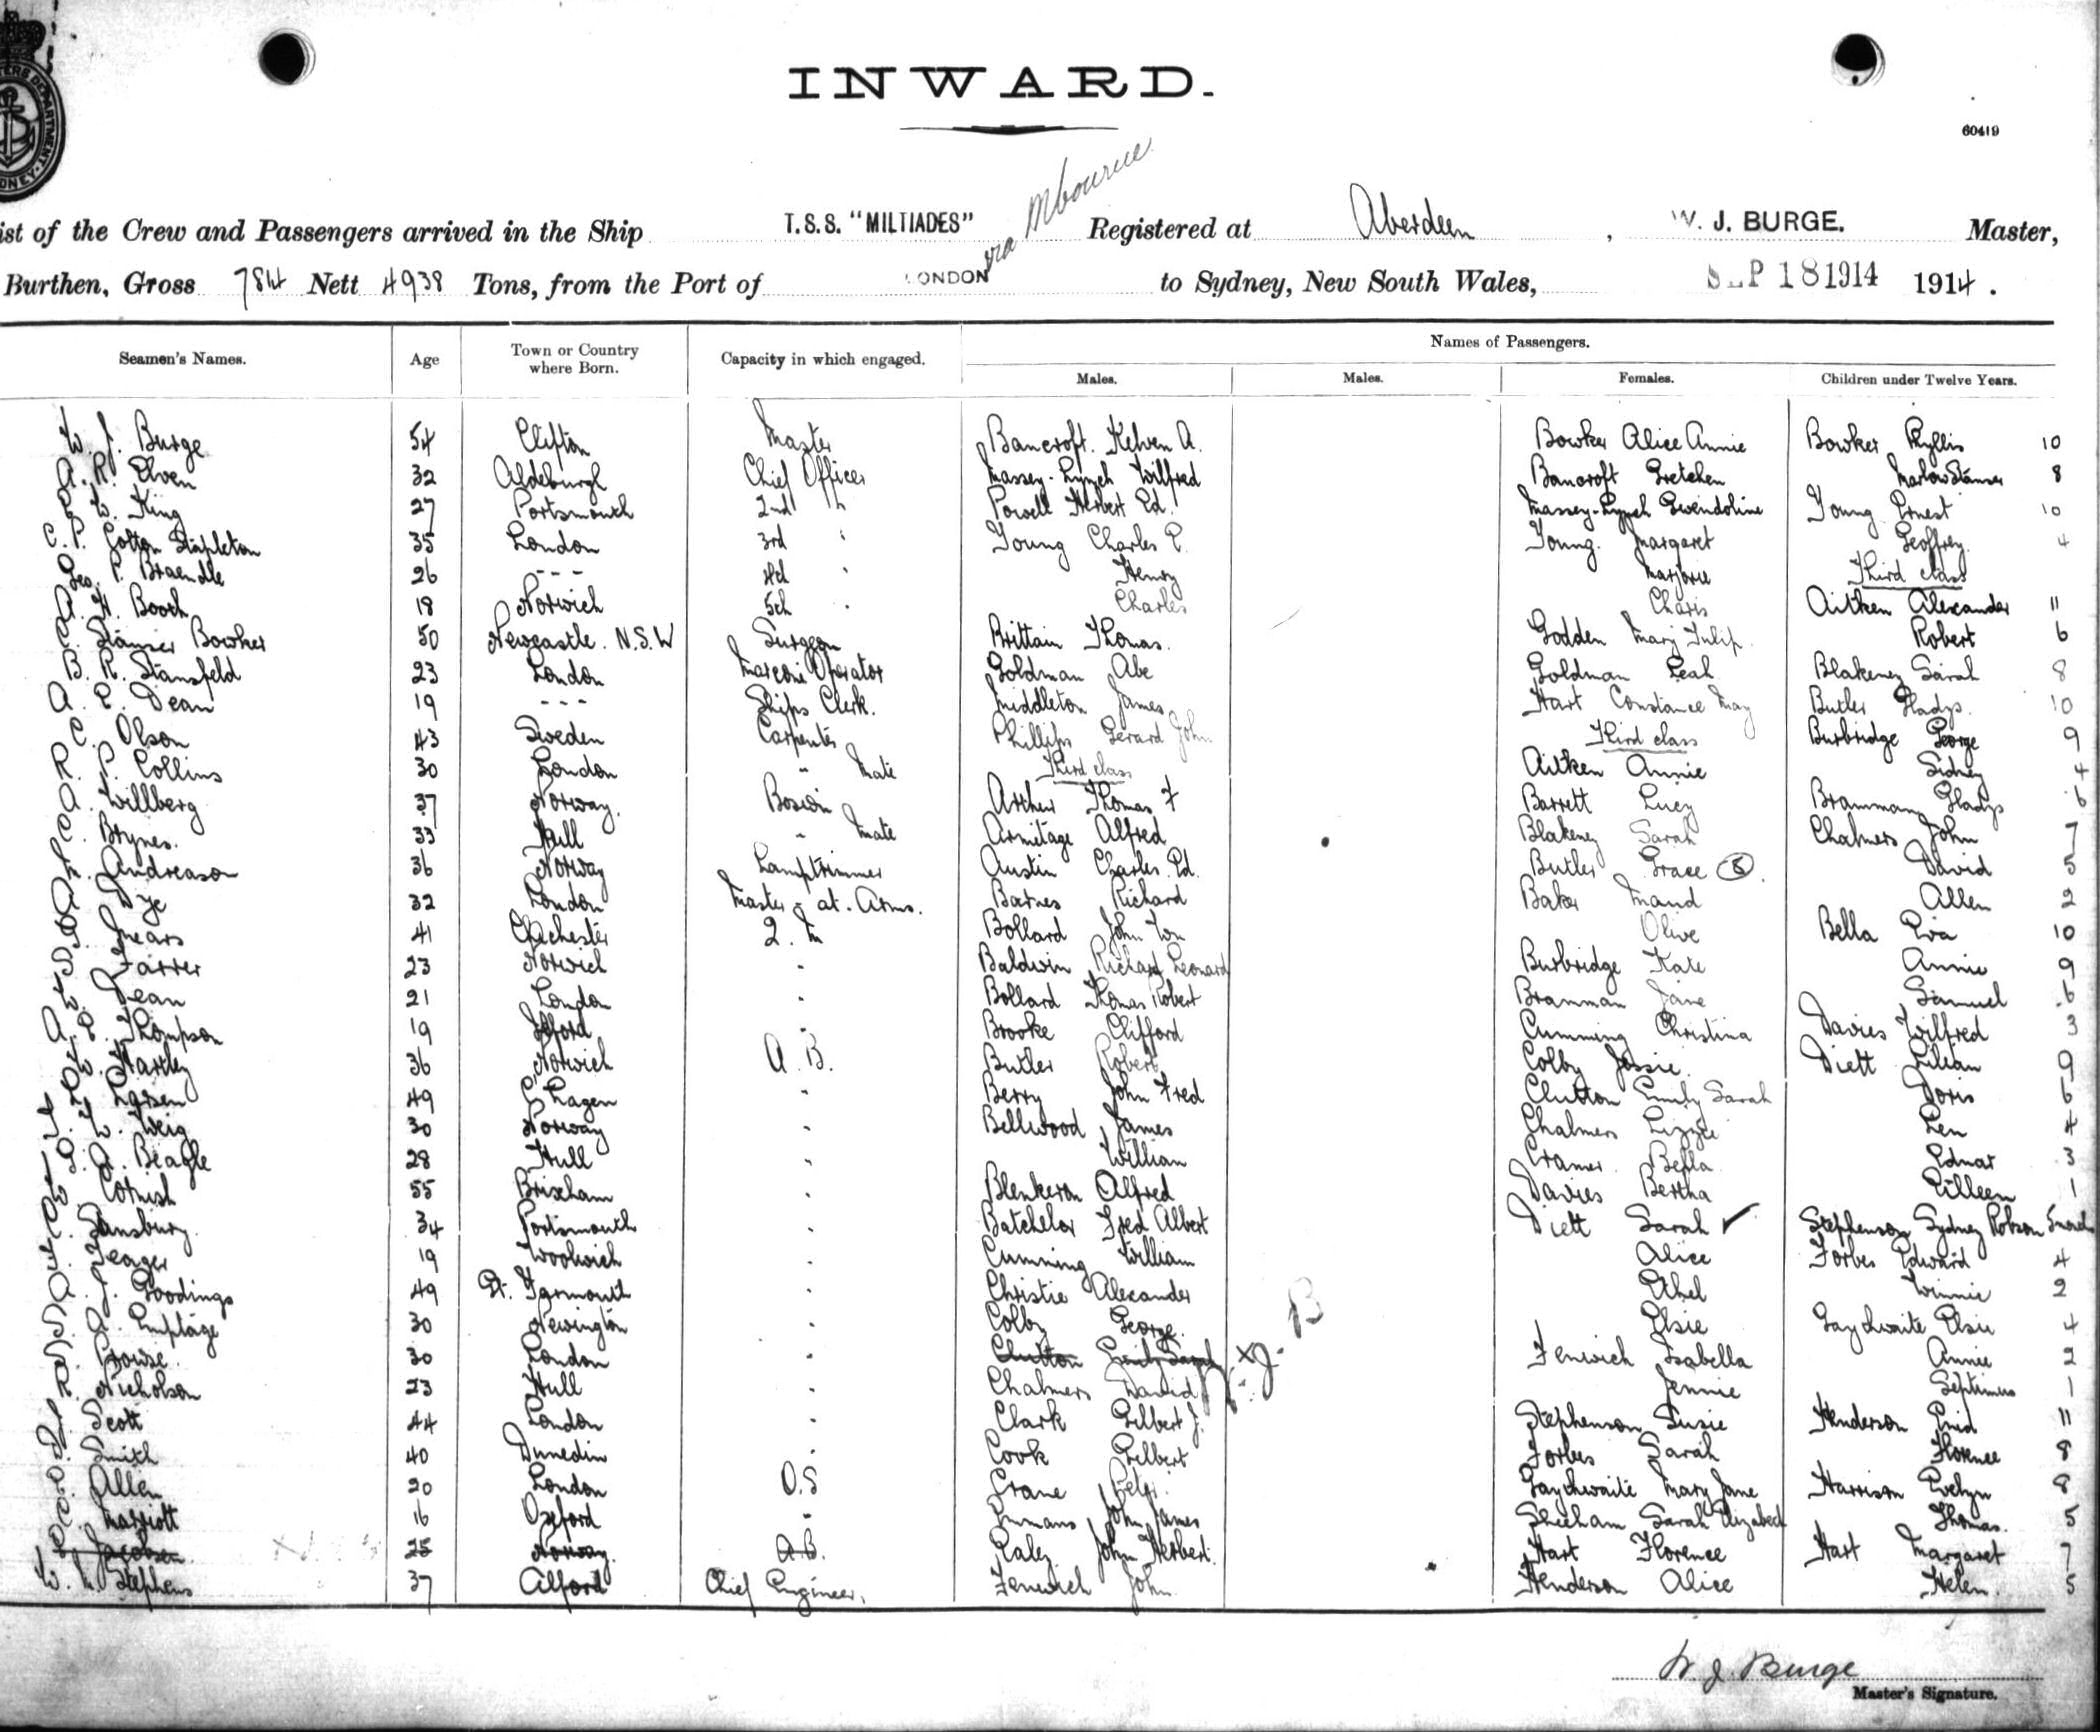 INWARD.
60419
ist of the Crew and Passengers arrived in the Ship T.S.S. "MILTIADES" via Mbourne Registered at Aberdeen, W. J. BURGE. Master,
Burthen, Gross 7814 Nett 4938 Tons, from the Port of LONDON to Sydney, New South Wales, SEP 18 1914 1914.
Names of Passengers.
Seamen's Names. Age Town or Country where Born. Capacity in which engaged. Males. Males. Females. Children under Twelve Years.
W. J. Burge 54 Clifton Master Bancroft. Kelven A. Bowker Alice Annie Bowker Phyllis 10
A. R. Elven 32 Aldeburgh Chief Officer Massey-Lynch Wilfred Bancroft Gretchen Marlow Stanser 8
W. King 27 Portsmouth 2nd " Powell Herbert Ed. Massey-Lynch Gwendoline Young Ernest 10
C. P. Cotton Stapleton 35 London 3rd " Young Charles E. Young. Margaret Geoffrey 4
Geo. P. Braendle 26 - - - 4th " Henry Marjorie Third class
A. H. Booth 18 Norwich 5th " Charles Charis Aitken Alexander 11
C. Stanser Bowker 50 Newcastle. N.S.W Surgeon Brittain Thomas. Godden Mary Tulip. Robert 6
B. R. Stansfeld 23 London Marconi Operator Goldman Abe Goldman Leah Blakeney Sarah 8
A. E. Dean 19 - - - Ships Clerk. Middleton James Hart Constance May Butler Gladys. 10
C. Olson 43 Sweden Carpenter Phillips Gerard John Third class Burbridge George 9
R. P. Collins 30 London " Mate Third class Aitken Annie Sidney 4
A. Willberg 37 Norway. Bosun Arthur Thomas F Barrett Lucy Bramman Gladys 6
C. Brynes. 33 Hull " Mate Armitage Alfred Blakeney Sarah Chalmers John 7
Andreason 36 Norway Lamptrimmer Austin Charles Ed. Butler Grace 8. David 5
Dye 32 London Master-at-Arms. Barnes Richard Baker Maud Allen 2
Mears 41 Chichester Q.M Bollard John Wm Olive Bella Eva 10
Farrer 23 Norwich " Baldwin Richard Leonard Burbridge Kate Annie 9
Dean 21 London " Bollard Thomas Robert Bramman Jane Samuel 6
A. E. Thompson 19 Ilford " Brooke Clifford Cumming Christina Davies Wilfred 3
W. Hartley 36 Norwich A.B. Butler Robert Colby Jessie. Diett Lilian 9
Larsen 49 C'hagen " Berry John Fred Clutton Emily Sarah Doris 6
W. Weig 30 Norway " Bellwood James Chalmers Lizzie Len 4
A. Beagle 28 Hull " William Cramer. Bella. Ednar 3
Cornish 55 Brixham " Blenkeron Alfred Davies Bertha Eilleen 1
Sansbury. 34 Portsmouth " Batchelor Fred Albert Diett Sarah ✓ Stephenson Sydney Robson 5 mnth
Yeager 19 Woolwich " Cumming William Alice Forbes Edward 4
J. Goodings 49 Gt. Yarmouth " Christie Alexander Ethel Winnie 2
A. Emptage 30 Newington " Colby George. Elsie Gaythwaite Elsie 4
Prowse. 30 London " Clutton Emily Sarah X Fenwich Isabella Annie 2
W.J.B
R. Nicholson 23 Hull " Chalmers David Jennie Septimus 1
Scott 44 London " Clark Gilbert J. Stephenson Susie Henderson Enid 11
Smith 40 Dunedin " Cook Gilbert Forbes Sarah Florence 8
Allen 20 London O.S Crane Peter. Gaythwaite Mary Jane Harrison Evelyn 8
C. Marriott 16 Oxford " Emmans John James Sheeham Sarah Elizabeth Thomas. 5
Jacobsen 25 Norway. A.B. Raley John Herbert. Hart Florence Hart Margaret 7
W. M. Stephens 37 Alford Chief Engineer, Fenwich John Henderson Alice Helen. 5
W. J. Burge
Master's Signature.